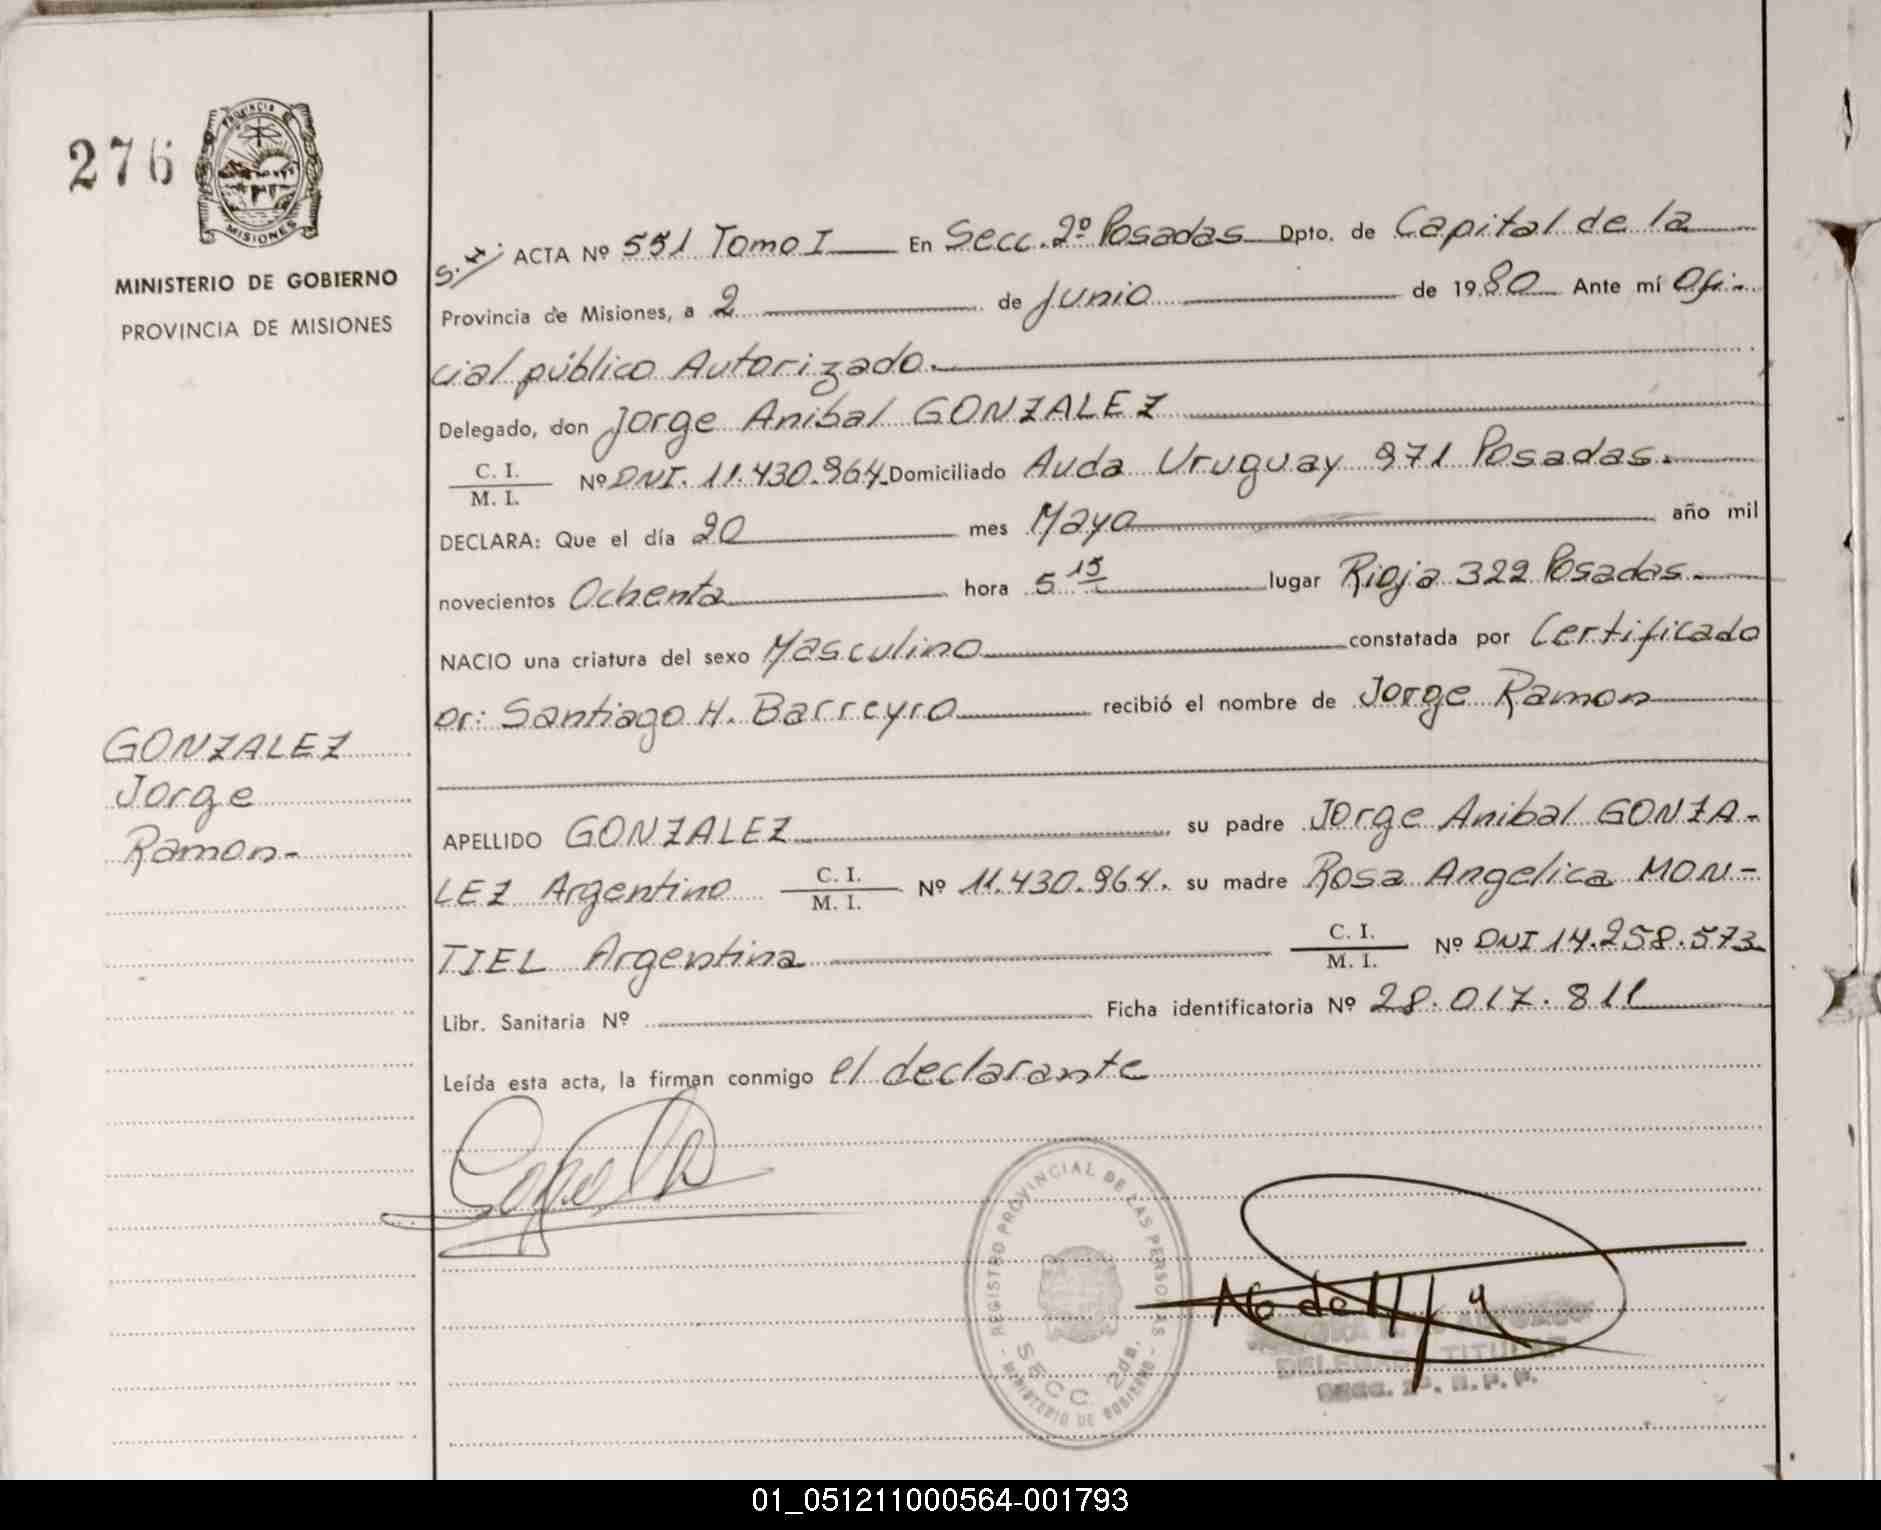 276
PROVINCIA DE
MISIONES
MINISTERIO DE GOBIERNO
PROVINCIA DE MISIONES
GONZALEZ
Jorge
Ramon-
ACTA Nº 551 Tomo I En Secc. 2º Posadas Dpto. de Capital de la
Provincia de Misiones, a 2 de Junio de 1980 Ante mí Ofi-
cial público Autorizado.
Delegado, don Jorge Anibal GONZALEZ
C. I.
M. I. Nº DNI. 11.430.964 Domiciliado Avda Uruguay 971 Posadas.
DECLARA: Que el día 20 mes Mayo año mil
novecientos Ochenta hora 5 15 lugar Rioja 322 Posadas.
NACIO una criatura del sexo Masculino constatada por Certificado
Dr: Santiago H. Barreyro recibió el nombre de Jorge Ramon
APELLIDO GONZALEZ su padre Jorge Anibal GONZA-
LEZ Argentino C. I.
M. I. Nº 11.430.964. su madre Rosa Angelica MON-
TIEL Argentina C. I.
M. I. Nº DNI 14.258.573
Libr. Sanitaria Nº Ficha identificatoria Nº 28.017.811
Leída esta acta, la firman conmigo el declarante
REGISTRO PROVINCIAL DE LAS PERSONAS
SECC. 2da.
- MINISTERIO DE GOBIERNO -
TITULAR
01_051211000564-001793